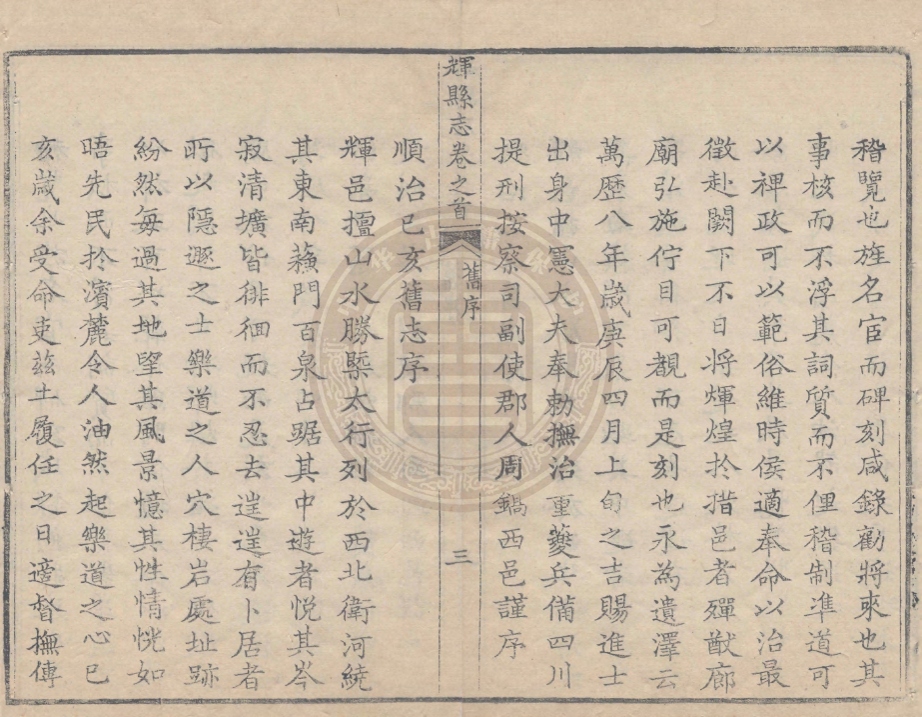 稽覽也旌名宦而碑刻咸錄勸將來也其
事核而不浮其詞質而不俚稽制準道可
以裨政可以範俗維時侯適奉命以治最
徵赴闕下不日將煇煌扵措邑者殫猷廊
廟弘施佇目可覩而是刻也永為遺澤云
萬歷八年歲庚辰四月上旬之吉賜進士
出身中憲大夫奉勅撫治重夔兵備四川
提刑按察司副使郡人周鍋西邑謹序
輝縣志卷之首
舊序
三
順治已亥舊志序
輝邑擅山水勝槩太行列於西北衛河繞
其東南蘓門百泉占踞其中遊者悅其岑
寂清壙皆徘徊而不忍去逞逞有卜居者
所以隱遯之士樂道之人穴棲岩處址跡
紛然每過其地望其風景憶其性情恍如
晤先民扵濱麓令人油然起樂道之心已
亥歲余受命吏兹土履任之日適督撫傳